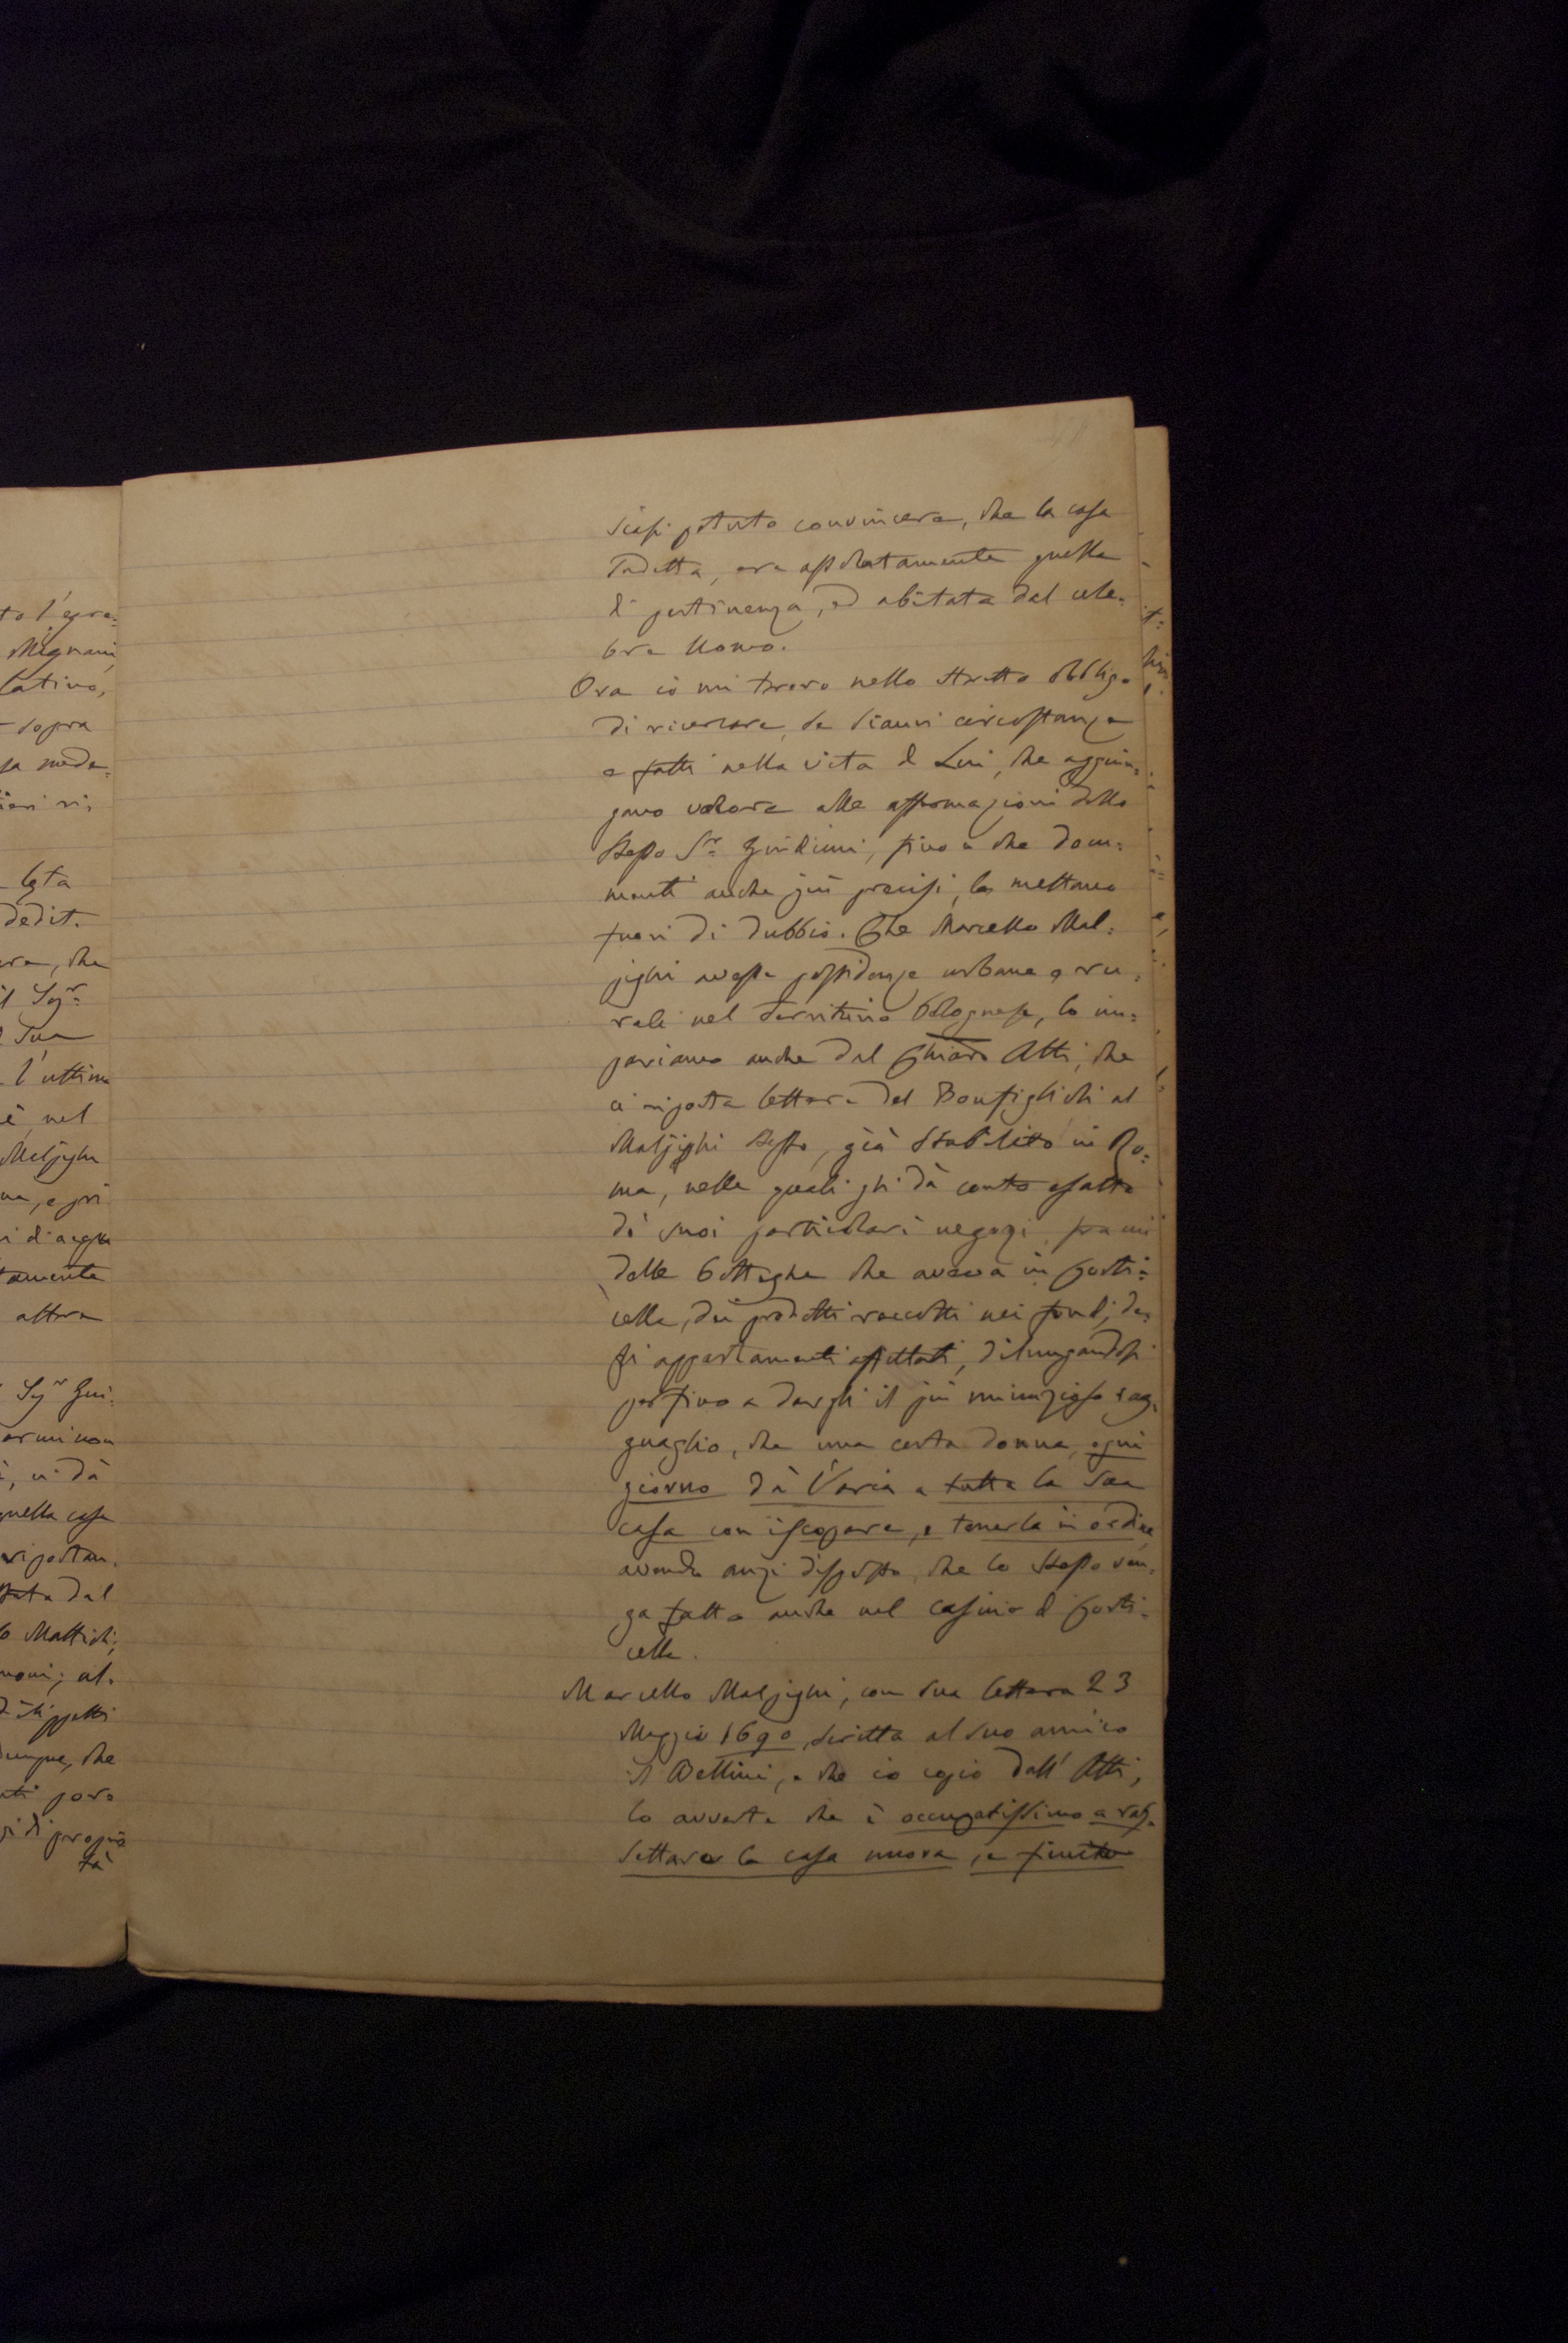 to l'egre=
Mignani
latino,
sopra
sa mede=
ieri ri=
lęta
dedit.
era, che
il Sigr=
Sua
l'ultima
è nel
Malpighi
ma, e pri
i d'acqua
tamente
altra
Sigr Gui=
armi non
ci dà
quella casa
riportan=
stata dal
Mattioli,
noni; al=
dunque, che
però
di propie
tà
siasi potuto convincere, che la casa
sudetta, era assolutamente quella
di pertinenza, ed abitata dal cele=
bre Uomo.
Ora io mi trovo nello stretto obbligo
di ricercare, se sianvi circostanze
e fatti nella vita di Lui, che aggiun=
gano valore alle affermazioni dello
stesso Sr= Guidicini, fino a che docu=
menti anche più precisi, la mettano
fuori di dubbio. Che Marcello Mal=
pighi avesse possidenze urbane e ru=
rali nel territorio bolognese, lo im=
pariamo anche dal Chiaro Atti, che
ci riporta lettere del Bonfiglioli al
Malpighi stesso, già stabilito in Ro=
ma, nelle quali gli dà conto esatto
di suoi particolari negozi, fra cui
delle botteghe che aveva in Corti=
cella, dei prodotti raccolti nei fondi, de=
gli appartamenti affittati, dilungandosi
perfino a dargli il più minuzioso rag=
guaglio, che una certa donna, ogni
giorno dà l'aria a tutta la sua
casa con iscopare, e tenerla in ordine
avendo anzi disposto, che lo stesso ven=
ga fatto anche nel casino di Corti=
cella.
Marcello Malpighi, con sua lettera 23
Maggio 1690, scritta al suo amico
il Bellini, e che io copio dall' Atti,
lo avverte che è occupatissimo a ras=
settare la casa nuova, e finito